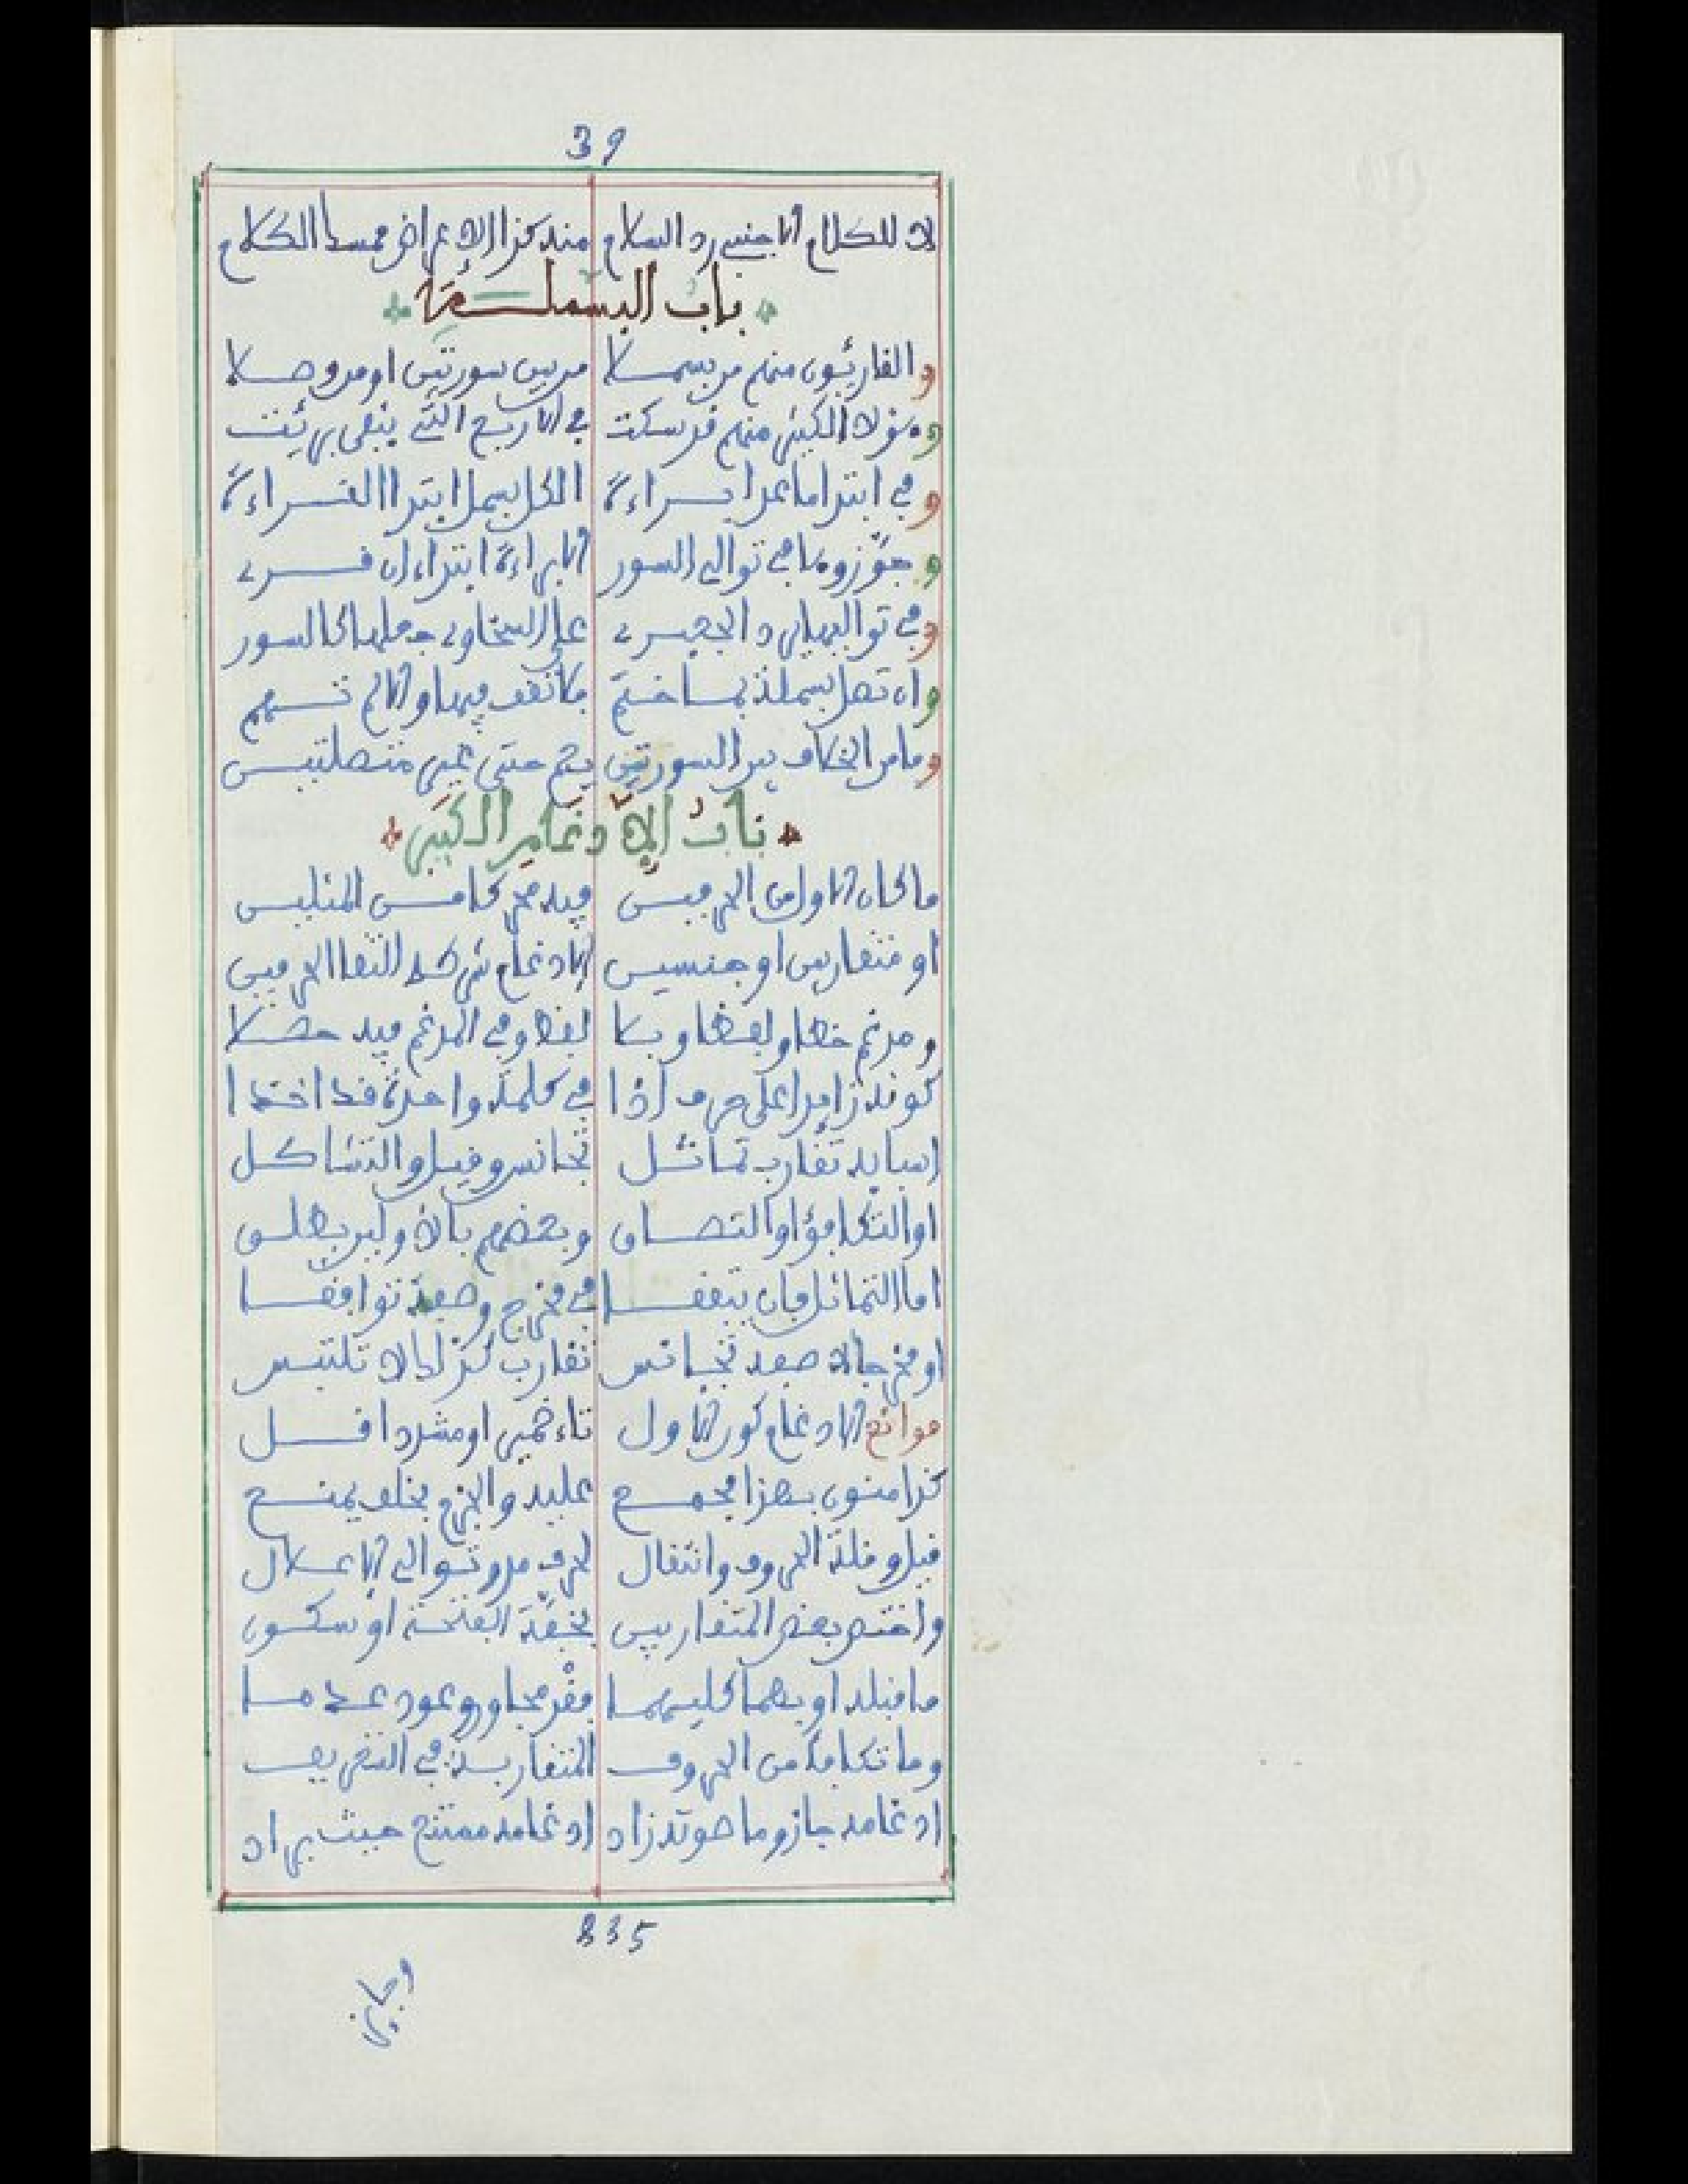 39
لا للكلام الاجنبي رد السلام منه كذا الاعراض مسا الكلام
باب البسملة
والقارئون منهم من بسملا من بين سورتين او من وصلا
وهؤلاء الكثير منهم قد سكت في الاربع التي
وفي ابتدا ما عدا براءة الكل بسمل ابتدا القراءة
وجوزوها في توالي السور الا براءة ابتداء ان قرى
وفي توالي والجعبري على السخاوي السور
وان تصل بسملة بما ختم فلا تقف فيها والا لم تسم
وما من الخلاف بين السورتين يعم حتى غير متصلتين
باب الادغام الكبير
ما كان الاول من الحرفين فيه محركا من المثلين
او متقاربين او جنسين الادغام شرطه التقا الحرفين
ومدغم خطا ولفظا وبلا لفظا وفي المدغم فيه حظلا
كونه زايدا على حرف اذا في كلمة واحدة قد اخذا
اسبابه تقارب تماثل تجانس وقيل والتشاكل
او التكافؤ او التصاق وبعضهم بالاولين يطلق
اما التماثل فان يتفقا في مخرج وصفة توافقا
او مخرجا لا صفة تجانس تقارب كذا لا تلتبس
موانع الادغام كون الاول تاء ضمير او مشددا قل
كذا منون بهذا مجمع عليه والجزم بخلف يمنع
قيل وقلة الحروف وانتقال لحرف مد وتوالي الاعلال
واختص بعض المتقاربين بخفة الفتحة او سكون
ما قبله او بهما كليهما فقد مجاور وعود عدما
وما تكافا من الحروف المتقاربة في التعريف
ادغامه جاز وما صوته زاد ادغامه ممتنع حيث يراد
835
وجاء